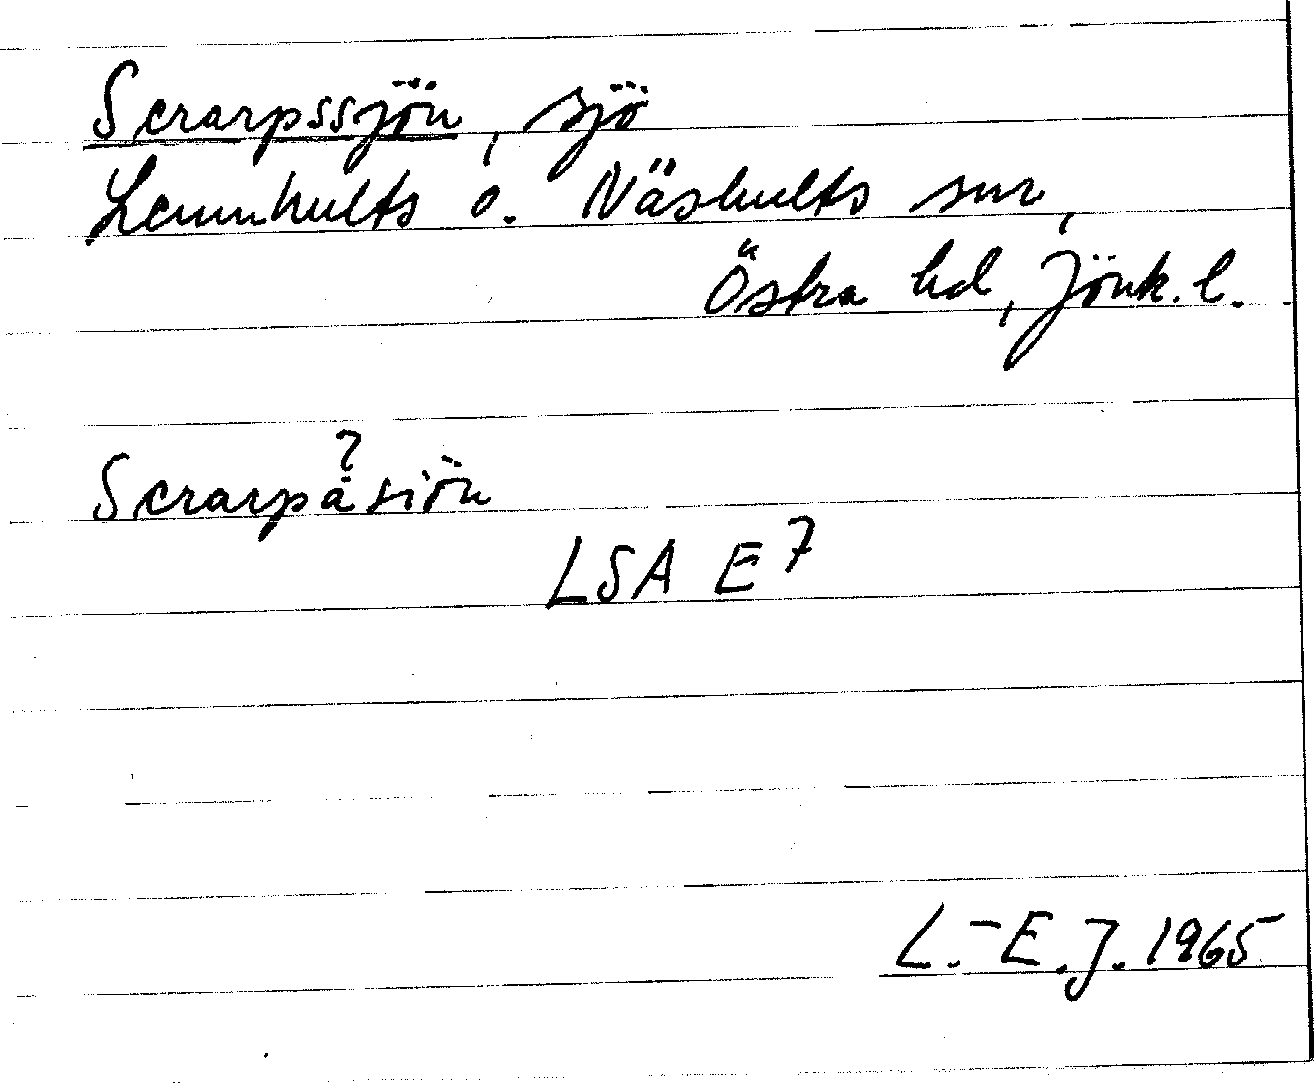 Serarpssjön, sjö
Lemnhults o. Näshults snr,
Östra hd, Jönk. l.
?
Serarpåsiön
LSA E7
L.-E.J. 1965